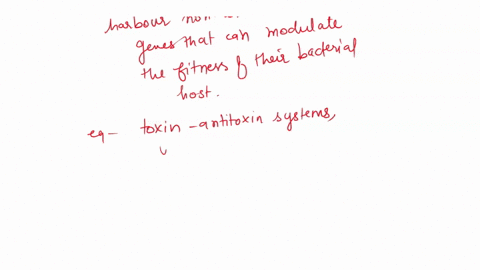 harbour
genes that can modulate
the fitness of their bacterial
host.
eg- toxin-antitoxin systems,